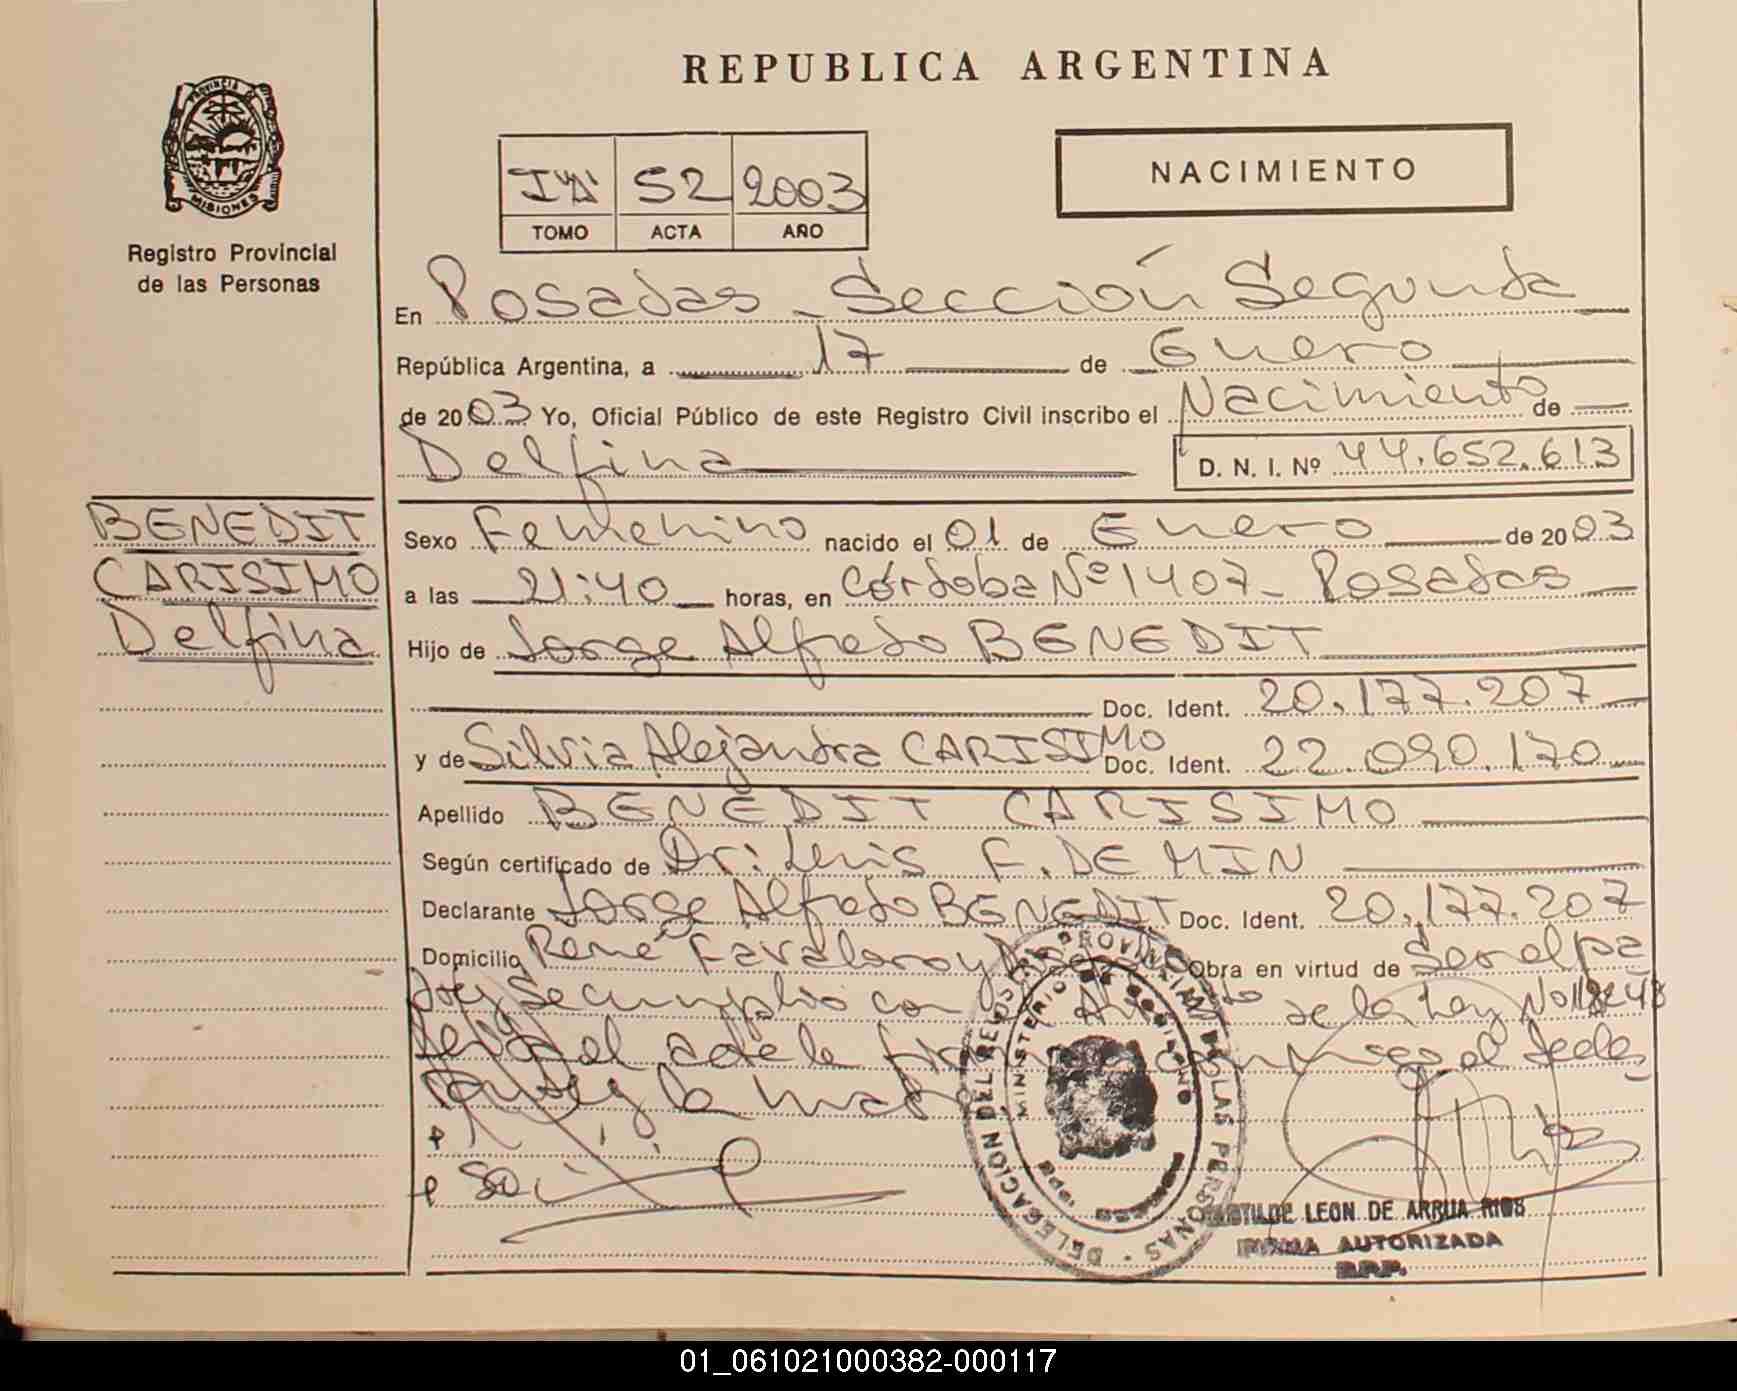 REPUBLICA ARGENTINA
PROVINCIA DE
MISIONES
Registro Provincial
de las Personas
52 2003
TOMO ACTA AÑO
NACIMIENTO
En Posadas - Sección Segunda
República Argentina, a 17 de Enero
de 2003 Yo, Oficial Público de este Registro Civil inscribo el Nacimiento de
Delfina D. N. I. Nº 44.652.613
BENEDIT
CARISIMO
Delfina
Sexo Femenino nacido el 01 de Enero de 2003
a las 21:40 horas, en Córdoba Nº 1407 - Posadas
Hijo de Jorge Alfredo BENEDIT
Doc. Ident. 20.177.207
y de Silvia Alejandra CARISIMO Doc. Ident. 22.090.170
Apellido BENEDIT CARISIMO
Según certificado de Dr. Luis F. DE MIN
Declarante Jorge Alfredo BENEDIT Doc. Ident. 20.177.207
Domicilio René Favaloro y Obra en virtud de
Se cumplio con de la Ley No 18248
la
y la
DELEGACION DEL REGISTRO PROVINCIAL DE LAS PERSONAS
MINISTERIO DE GOBIERNO
LEON DE ARRUA RIOS
FIRMA AUTORIZADA
R.P.P.
01_061021000382-000117